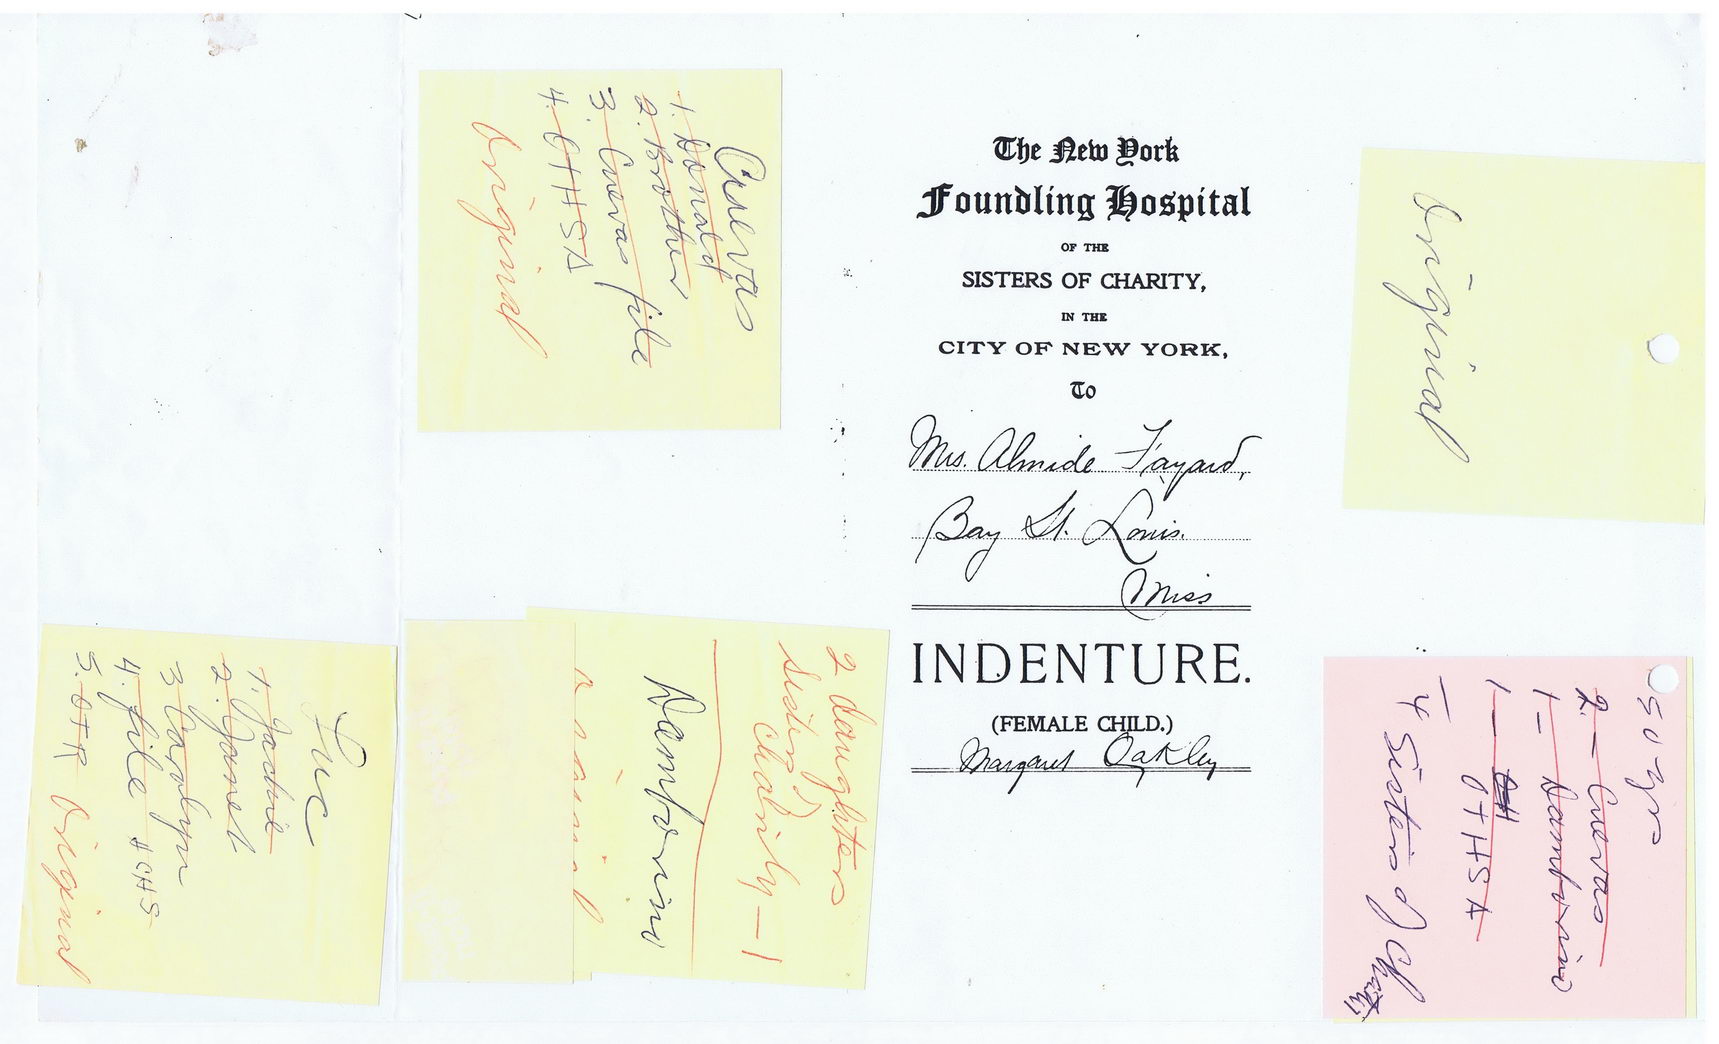 Cuevas
1. Donald
2. Brother
3. Cuevas file
4. OTHSA
Original
The New York
Foundling Hospital
OF THE
SISTERS OF CHARITY,
IN THE
CITY OF NEW YORK,
To
Mrs. Almide Fayard,
Bay St. Louis.
Miss
INDENTURE.
(FEMALE CHILD.)
Margaret Oakley
Original
Luc
1. Jackie
2. Janel
3 Carolyn
4. file HCHS
5. OTR
Original
2 daughters
Sisters)
Charity - 1
Damborino
50 yr
2. - Cuevas
1 - Damborino
1 - OTHSA
4 Sisters of Charity